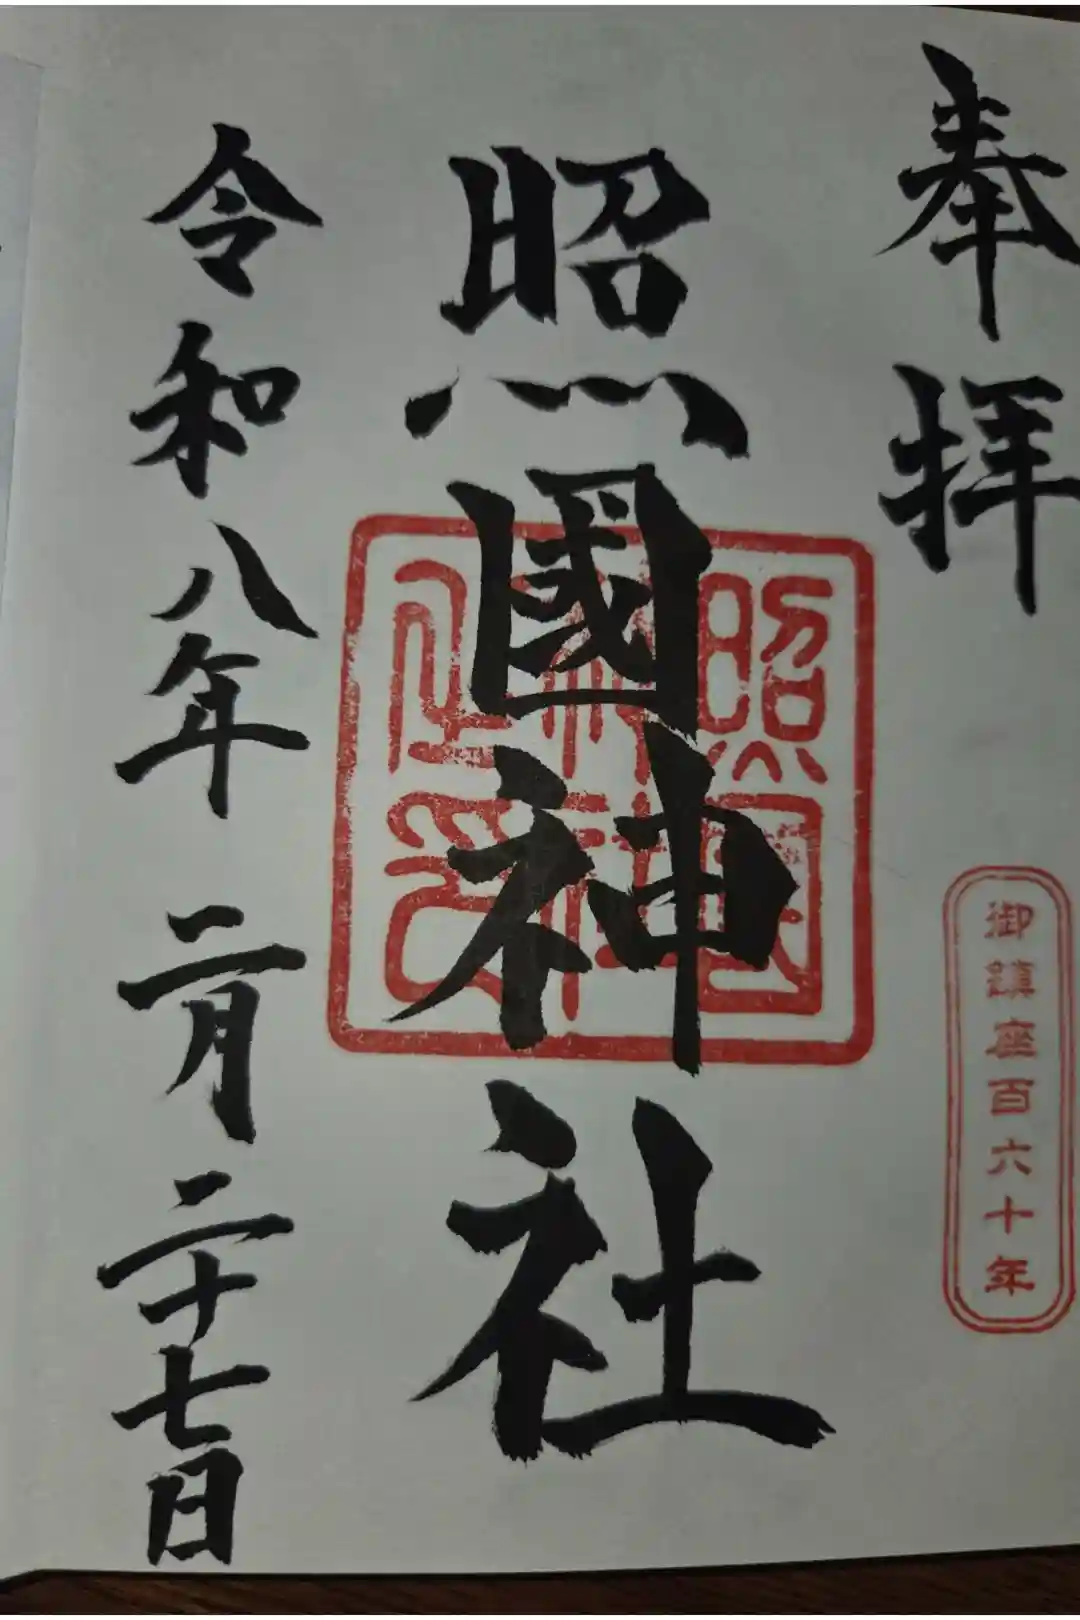 奉拝
御鎮座百六十年
照國神社
照國神社之印
令和八年二月二十七日